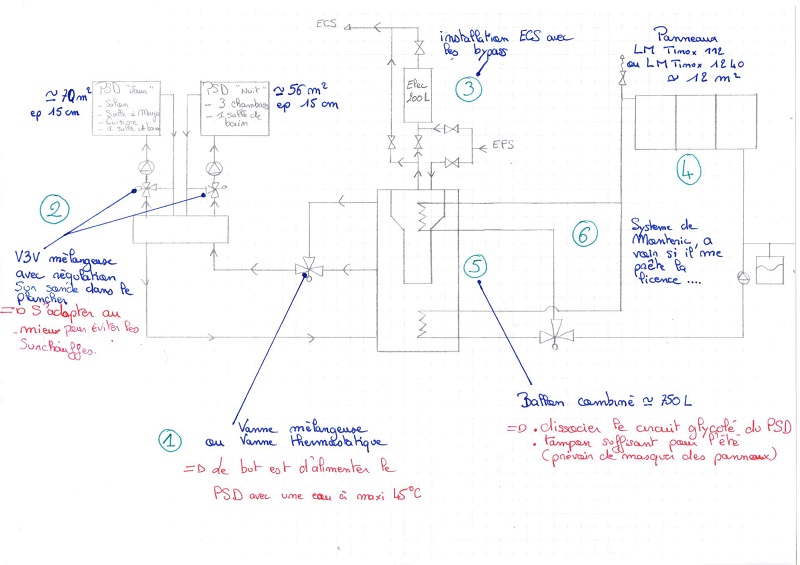 ECS
installation ECS avec
les bypass
3
Elec
200L
EFS
Panneaux
LM Tinox 112
ou LM Tinox 1240
≈ 12 m²
4
≈ 70 m²
ep 15 cm
PSD "Jour"
- Salon
- Salle à Manger
- Cuisine
- 1 salle de bain
PSD "Nuit"
- 3 chambres
- 1 salle de
bain
≈ 56 m²
ep 15 cm
2
V3V mélangeuse
avec régulation
Sur sonde dans le
plancher
=D S'adapter au
mieux pour éviter les
Surchauffes.
5
6
Système de
Manteric, a
voir si il me
prête la
licence ....
1
Vanne mélangeuse
ou Vanne thermostatique
=D Le but est d'alimenter le
PSD avec une eau à maxi 45°C
Ballon combiné ≈ 750 L
=D . dissocier le circuit glycolé du PSD
. tampon suffisant pour l'été
(prévoir de masquer des panneaux)